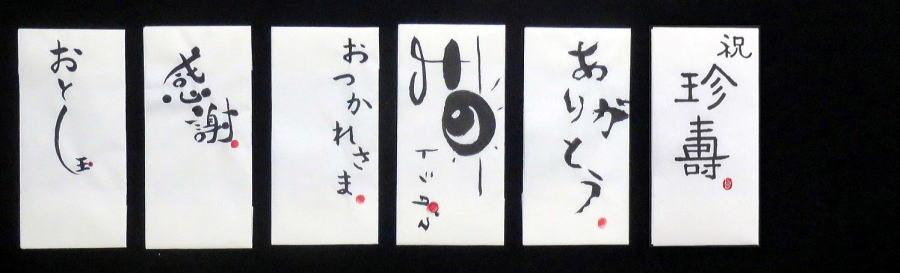 おとし玉
感謝
おつかれさま
ありがとう
祝
珍壽